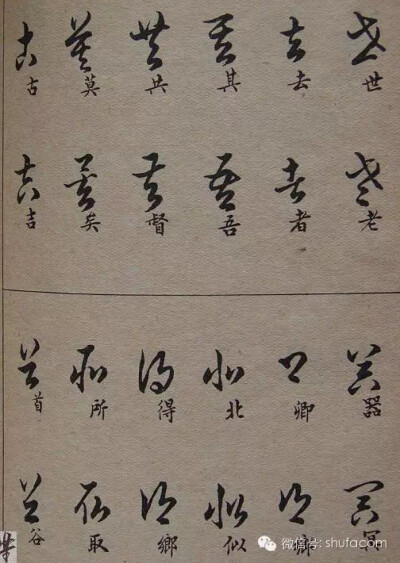 世去其共莫古
老者吾督矣吉
器卿北得所首
似鄉取谷
微信号: shufacom